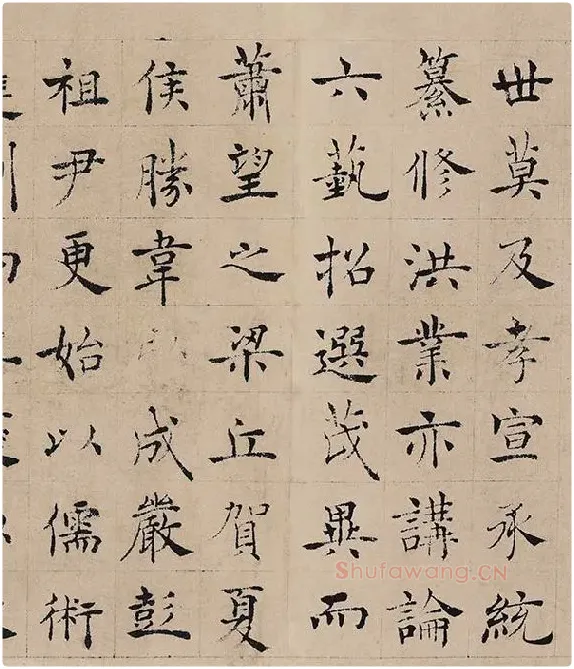 世莫及孝宣承統
纂修洪業亦講論
六藝招選茂異而
蕭望之梁丘賀夏
侯勝韋成嚴彭
祖尹更始以儒術
Shufawang.CN